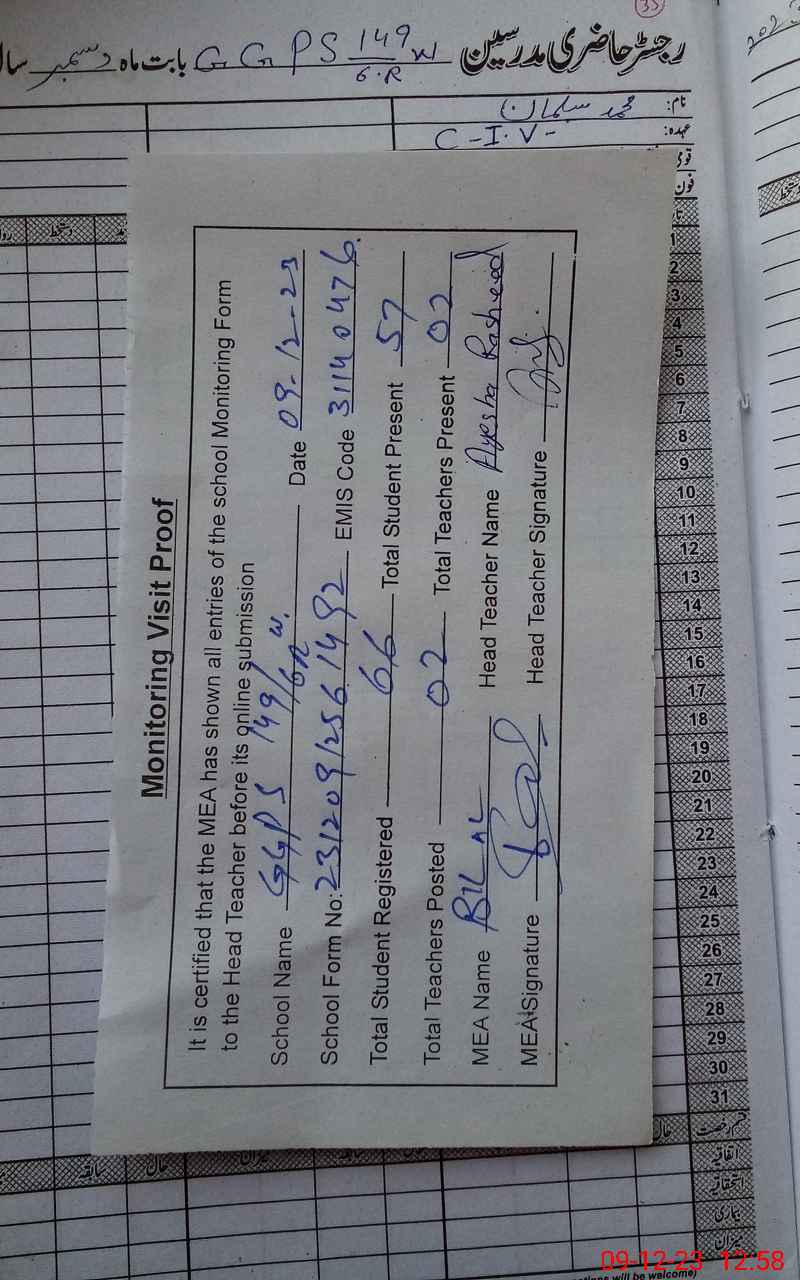 35
رجسٹر حاضری مدرسین GGPS 149/6.R W بابت ماہ دسمبر سال
نام: محمد سلمان
عہدہ: C-I.V-
قومی
فون
1
2
3
4
5
6
7
8
9
10
11
12
13
14
15
16
17
18
19
20
21
22
23
24
25
26
27
28
29
30
31
قسم رخصت
اتفاقیہ
استحقاقیہ
بیماری
میزان
دستخط
حال
سابقہ
میزان
Monitoring Visit Proof
It is certified that the MEA has shown all entries of the school Monitoring Form
to the Head Teacher before its online submission
School Name GGPS 149/6R W. Date 09-12-23
School Form No: 231209/256 1492 EMIS Code 31140476
Total Student Registered 66 Total Student Present 57
Total Teachers Posted 02 Total Teachers Present 02
MEA Name BILAL Head Teacher Name Ayesha Rasheed
MEA Signature Head Teacher Signature
09-12-23 12:58
ctions will be welcome)